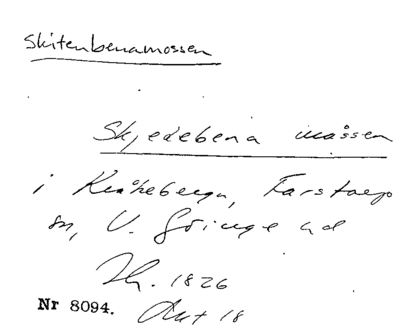 Skitenbenamossen
Skjedebena måssen
i Kråkeberga, Farstorp
sn, V. Göinge hd
Lh. 1826
Nr 8094. Akt 18